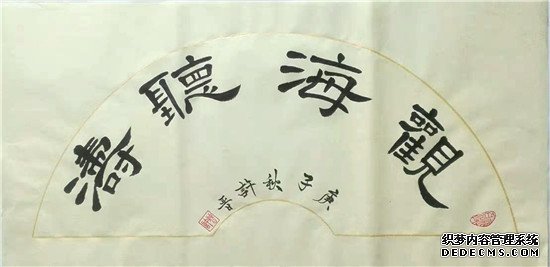 觀海聽濤
庚子秋許
织梦内容管理系统
DEDECMS.COM